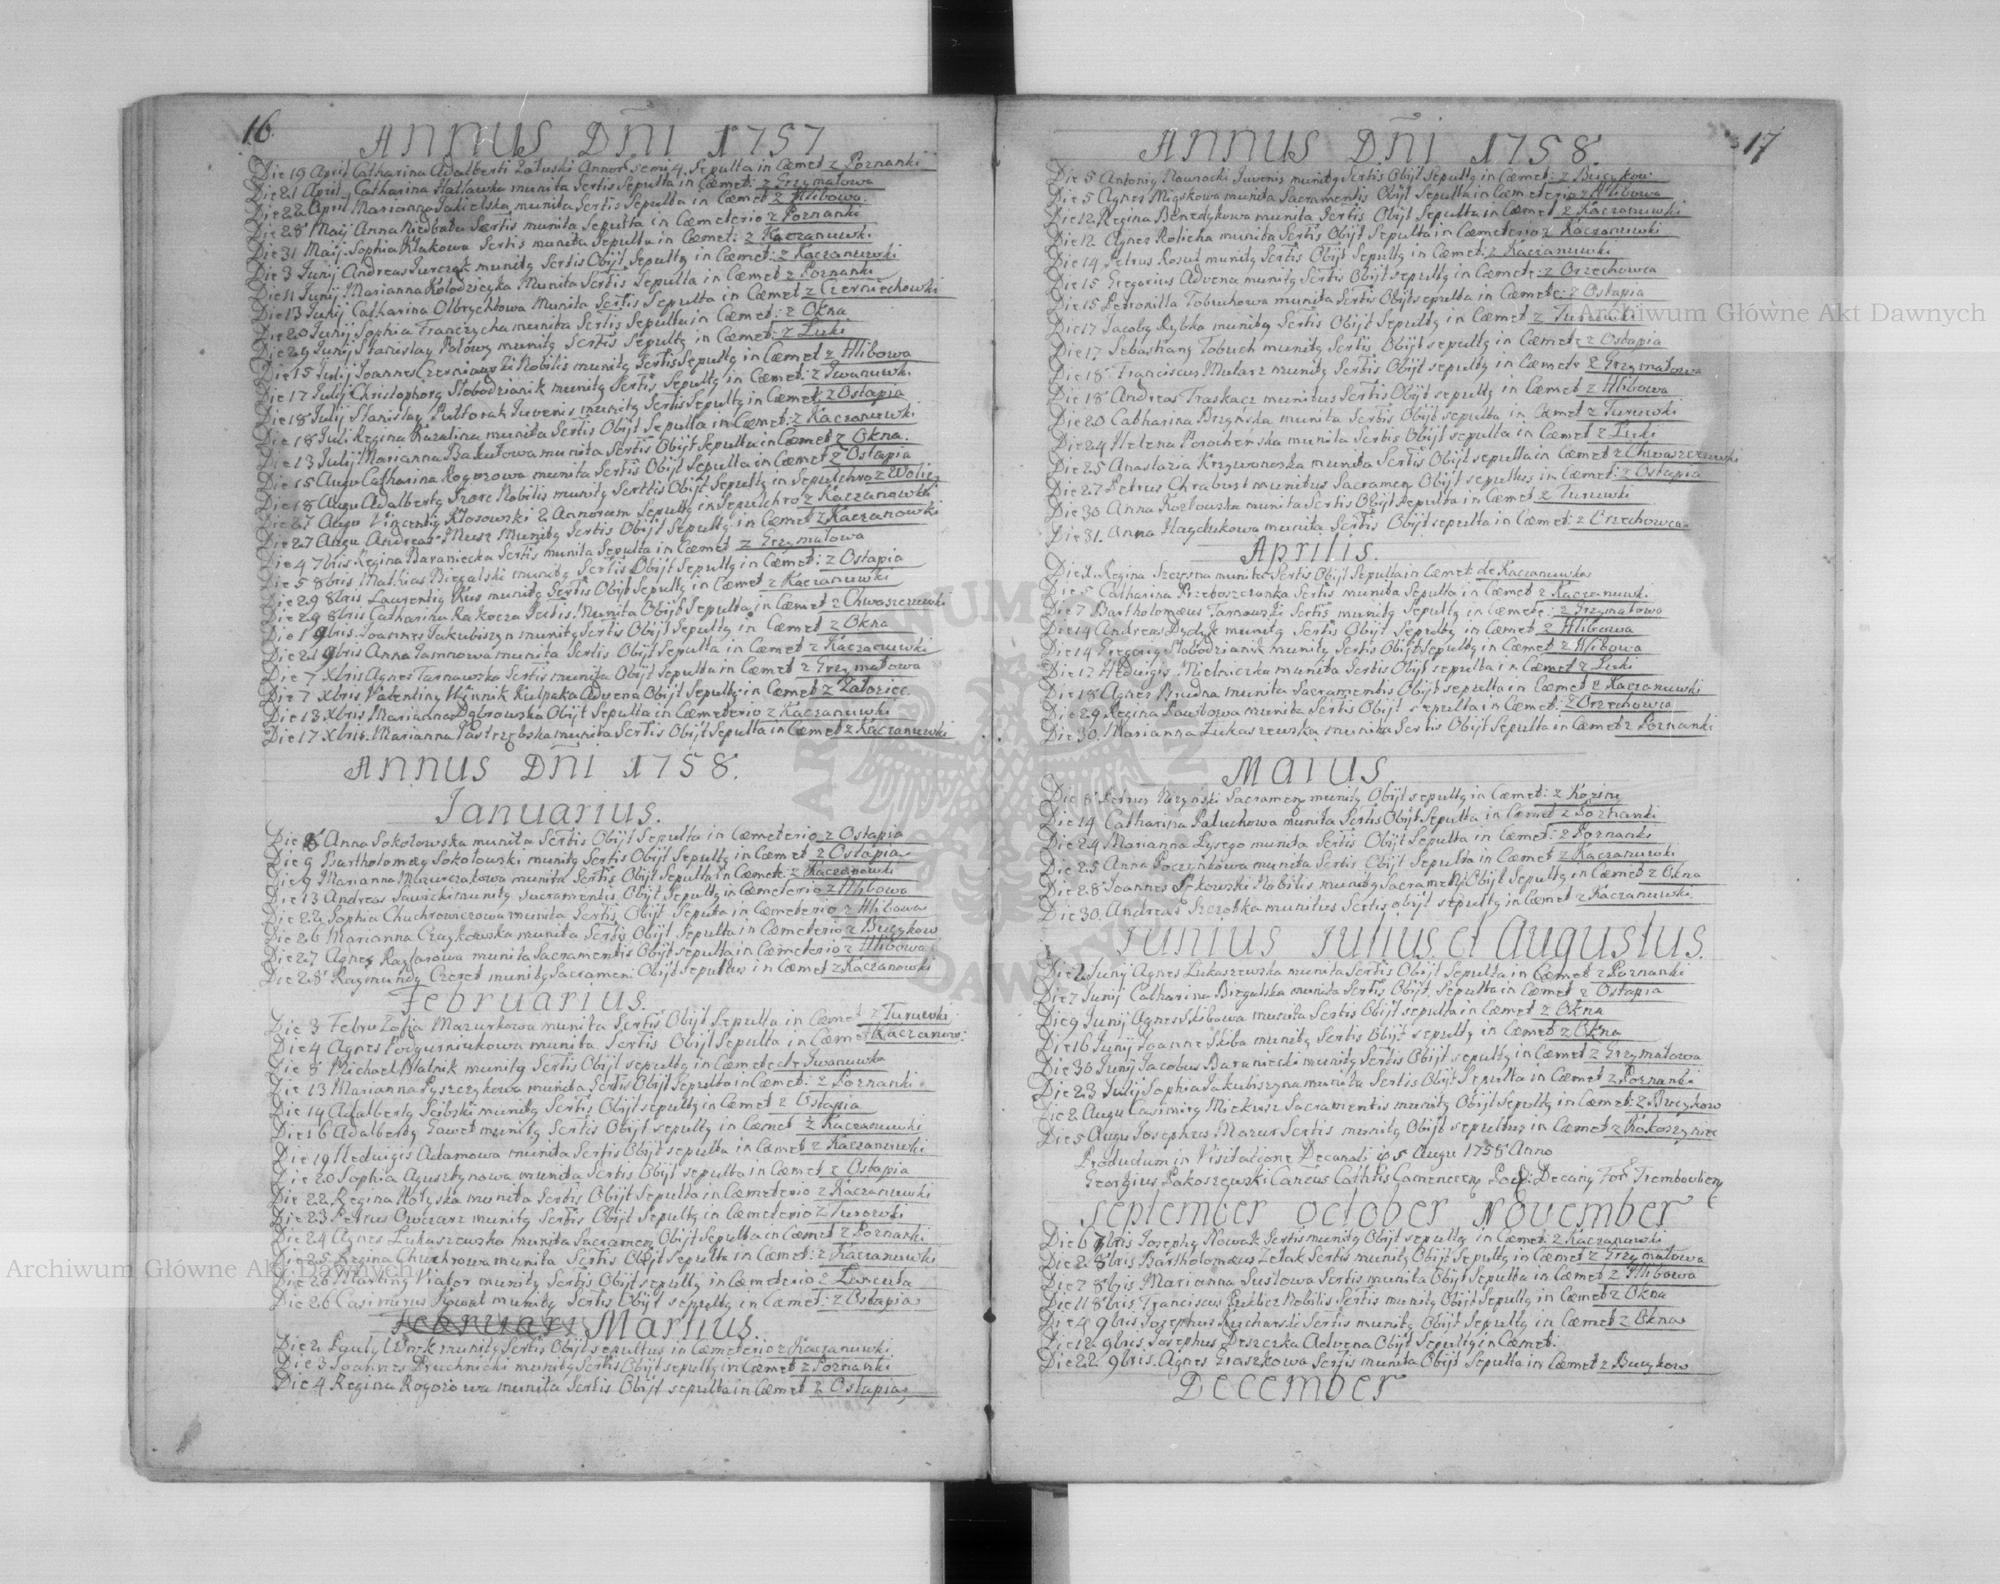 16
ANNUS DNI 1757
Die 19 April Catharina Adalberti Załuski Annor semi 4. Sepulta in Cæmet z Poznanki
Die 21 April Catharina munita Sctis Sepulta in Cæmet: z Grzymałowa
Die 22 April Marianna munita Sctis Sepulta in Cæmet z Hlibowa.
Die 28 Maij Anna munita Sepulta in Cæmeterio z Poznanki
Die 31 Maij Sophia Sctis munita Sepulta in Cæmet: z Kaczanuwki
Die 3 Junij Andreas Jurczak munitg Sctis Obijt Sepultg in Cæmet: z Kaczanuwki
Die 11 Junij Marianna Kołodzieyka Munita Sctis Sepulta in Cæmet z Poznanki
Die 13 Junij Catharina Olbrychtowa Munita Sctis Sepulta in Cæmet z Czerniechowski
Die 20 Junij Sophia munita Sctis Sepulta in Cæmet: z Okna
Die 29 Junij Stanislag munitg Sctis Sepultg in Cæmet: z Łuki
Die 15 Julij Joannes Nobilis munitg Sctis Sepultg in Cæmet z Hlibowa
Die 17 Julij Christophorg Słobodzianik munitg Sctis Sepultg in Cæmet: z Iwanuwki
Die 18 Julij Stanislag Pułtorak Juvenis munitg Sctis Sepultg in Cæmet z Ostapia
Die 18 Juli Regina munita Sctis Obijt Sepulta in Cæmet: z Kaczanuwki
Die 13 Julij Marianna Bakutowa munita Sctis Obijt Sepulta in Cæmet z Okna.
Die 15 Augu Catharina Rogozowa munita Sctis Obijt Sepulta in Cæmet z Ostapia
Die 18 Augu Adalbertg Nobilis munitg Obijt Sepultg in Sepulchro z
Die 27 Augu Vincentig Kłosowski 2 Annorum Sepultg in Sepulchro z Kaczanowki
Die 27 Augu Andreas Munitg Sctis Obijt Sepultg in Cæmet z Kaczanowki
Die 4 7bris Regina Baraniecka Sctis munita Sepulta in Cæmet z Grzymałowa
Die 5 8bris Mathias Biegalski munitg Sctis Obijt Sepultg in Cæmet: z Ostapia
Die 29 8bris Laurentig Kus munitg Sctis Obijt Sepultg in Cæmet z Kaczanuwki
Die 29 8bris Catharina Rakocza Sctis Munita Obijt Sepulta in Cæmet z Chwaszczuwki
Die 1 9bris Joannes Jakubiszyn munitg Sctis Obijt Sepultg in Cæmet z Okna
Die 21 9bris Anna munita Sctis Obijt Sepulta in Cæmet z Kaczanuwki
Die 7 Xbris Agnes Tarnawska Sctis munita Obijt Sepulta in Cæmet z Grzymałowa
Die 7 Xbris Valenting Winnik Kulpaka Advena Obijt Sepultg in Cæmet z
Die 13 Xbris Marianna Dąbrowska Obijt Sepulta in Cæmeterio z Kaczanuwki
Die 17 Xbris Marianna Jastrzębska munita Sctis Obijt Sepulta in Cæmet z Kaczanuwki
ANNUS DNI 1758.
Ianuarius.
Die 8 Anna Sokołowska munita Sctis Obijt Sepulta in Cæmeterio z Ostapia
Die 9 Bartholomæg Sokołowski munitg Sctis Obijt Sepultg in Cæmet z Ostapia
Die 9 Marianna munita Sctis Obijt Sepulta in Cæmet: z Kaczanuwki
Die 13 Andreas Sawicki munitg Sacramentis Obijt Sepultg in Cæmeterio z Hlibowa
Die 22 Sophia Chuchrowiczowa munita Sctis Obijt Sepulta in Cæmeterio z Hlibowa
Die 26 Marianna Czaykowska munita Sctis Obijt Sepulta in Cæmeterio z Bucykow
Die 27 Agnes munita Sacramentis Obijt Sepulta in Cæmeterio z Hlibowa
Die 28 Raymundg Czeret munitg Sacramen: Obijt Sepultus in Cæmet z Kaczanowki
Februarius.
Die 3 Febru Zofia Mazurkowa munita Sctis Obijt Sepulta in Cæmet z Turuwki
Die 4 Agnes munita Sctis Obijt Sepulta in Cæmet z Kaczanuw:
Die 8 Michael Młatnik munitg Sctis Obijt sepultg in Cæmet: de Iwanuwka
Die 13 Marianna Pyszczykowa munita Sctis Obijt Sepulta in Cæmet: z Poznanki
Die 14 Adalbertg munitg Sctis Obijt Sepultg in Cæmet z Ostapia
Die 16 Adalbertg Gaweł munitg Sctis Obijt sepultg in Cæmet z Kaczanuwki
Die 19 Hedwigis Adamowa munita Sctis Obijt sepulta in Cæmet z Kaczanuwki
Die 20 Sophia Agusztynowa munita Sctis Obijt sepulta in Cæmet z Ostapia
Die 22 Regina munita Sctis Obijt Sepulta in Cæmeterio z Kaczanuwki
Die 23 Petrus Owczarz munitg Sctis Obijt Sepultg in Cæmeterio z Turowki
Die 24 Agnes Łukaszewska munita Sacramen Obijt Sepulta in Cæmet z Poznanki
Die 25 Regina Chuchrowa munita Sctis Obijt Sepulta in Cæmet: z Kaczanuwki
Die 26 Marting Viator munitg Sctis Obijt Sepultg in Cæmeterio z Łancuta
Die 26 Casimirus Kowal munitg Sctis Obijt sepultg in Cæmet: z Ostapia
Martius.
Die 2 Paulg munitg Sctis Obijt sepultus in Cæmeterio z Kaczanuwki
Die 3 Joannes Druchnicki munitg Sctis Obijt sepultg in Cæmet z Poznanki
Die 4 Regina Rogozowa munita Sctis Obijt sepulta in Cæmet z Ostapia
17
ANNUS DNI 1758.
Die 5 Antonig Nawrocki Juvenis munitg Sctis Obijt Sepultg in Cæmet: z Bucykow
Die 5 Agnes munita Sacramentis Obijt Sepulta in Cæmeterio z Hlibowa
Die 12 Regina Benedykowa munita Sctis Obijt Sepulta in Cæmet z Kaczanuwki
Die 12 Agnes Rolicha munita Sctis Obijt Sepulta in Cæmeterio z Kaczanuwki
Die 14 Petrus Kosul munitg Sctis Obijt Sepultg in Cæmet: z Kaczanuwki
Die 15 Gregorius Advena munitg Sctis Obijt sepultg in Cæmet: z Orzechowca
Die 15 Petronilla Tobuchowa munita Sctis Obijt sepulta in Cæmet: z Ostapia
Die 17 Jacobg Rybka munitg Sctis Obijt Sepultg in Cæmet z Turuwki
Die 17 Sebastiang Tobuch munitg Sctis Obijt sepultg in Cæmet: z Ostapia
Die 18 Franciscus Mularz munitg Sctis Obijt Sepultg in Cæmet: z Grzymałowa
Die 18 Andreas Traskacz munitus Sctis Obijt sepultg in Cæmet z Hlibowa
Die 20 Catharina munita Sctis Obijt sepulta in Cæmet z Turuwki
Die 24 Helena munita Sctis Obijt sepulta in Cæmet z Łuki
Die 25 Anastazia Krzywonoska munita Sctis Obijt sepulta in Cæmet z Chwaszczuwki
Die 27 Petrus Chrabust munitus Sacramen Obijt sepultus in Cæmet: z Ostapia
Die 30 Anna Kozłowska munita Sctis Obijt Sepulta in Cæmet z Turuwki
Die 31 Anna Haydukowa munita Sctis Obijt sepulta in Cæmet: z Orzechowca
Aprilis.
Die 2 Regina Szczęsna munita Sctis Obijt Sepulta in Cæmet de Kaczanuwka
Die 5 Catharina Przeboszczanka Sctis munita Sepulta in Cæmet z Kaczanuwki
Die 7 Bartholomæus Tarnowski Sctis munitg Sepultg in Cæmet: z Grzymałowa
Die 14 Andreas Dydyk munitg Sctis Obijt Sepultg in Cæmet z Hlibowa
Die 14 Gregorig Słobodzianik munitg Sctis Obijt Sepultg in Cæmet z Hlibowa
Die 17 Hedwigis Mielniczka munita Sctis Obijt sepulta in Cæmet z Łuki
Die 18 Agnes Brudna munita Sacramentis Obijt sepulta in Cæmet z Kaczanuwki
Die 29 Regina Pawłowa munita Sctis Obijt sepulta in Cæmet: z Orzechowca
Die 30 Marianna Łukaszewska munita Sctis Obijt Sepulta in Cæmet z Poznanki
MAIUS.
Die 8 Petrus Sacramen munitg Obijt sepultg in Cæmet: z
Die 14 Catharina Pałuchowa munita Sctis Obijt Sepulta in Cæmet z Poznanki
Die 24 Marianna Łysego munita Sctis Obijt Sepulta in Cæmet: z Poznanki
Die 25 Anna Poczynkowa munita Sctis Obijt Sepulta in Cæmet z Kaczanuwki
Die 28 Joannes Nobilis munitg Sacramen Obijt Sepultg in Cæmet z Okna
Die 30 Andreas Szczotka munitus Sctis obijt sepultg in Cæmet z Kaczanuwki
Iunius Iulius. et Augustus.
Die 2 Junij Agnes Łukaszewska munita Sctis Obijt Sepulta in Cæmet z Poznanki
Die 7 Junij Catharina Biegalska munita Sctis Obijt Sepulta in Cæmet z Ostapia
Die 9 Junij Agnes Skibowa munita Sctis Obijt sepulta in Cæmet z Okna
Die 16 Junij Joannes Skiba munitg Sctis Obijt sepultg in Cæmet z Okna
Die 30 Junij Jacobus Baraniecki munitg Sctis Obijt sepultg in Cæmet z Grzymałowa
Die 23 Julij Sophia Jakubszyna munita Sctis Obijt Sepulta in Cæmet z Poznanki
Die 2 Augu Casimirg Mickusz Sacramentis munitg Obijt Sepultg in Cæmet: z Bucykow
Die 5 Augu Josephus Mazur Sctis munitg Obijt sepultus in Cæmet z
Productum in Visitatione Decanali 5 Augu 1758 Anno
Georgius Pakoszewski Cancus Cathlis Camenecen Decang For Trembovlien
September october November
Die 6 7bris Josephg Nowak Sctis munitg Obijt Sepultg in Cæmet: z Kaczanuwki
Die 2 8bris Bartholomæus Sctis munitg Obijt Sepultg in Cæmet z Grzymałowa
Die 7 8bris Marianna Susłowa Sctis munita Obijt Sepulta in Cæmet z Hlibowa
Die 11 8bris Franciscus Nobilis Sctis munitg Obijt Sepultg in Cæmet z Okna
Die 4 9bris Josephus Kucharski Sctis munitg Obijt Sepultg in Cæmet z Okna
Die 12 9bris Josephus Deszczka Advena Obijt Sepultg in Cæmet.
Die 22 9bris Agnes Iraszkowa Sctis munita Obijt Sepulta in Cæmet z Bucykow
December
Archiwum Główne Akt Dawnych
Archiwum Główne Akt Dawnych
ARCHIWUM GŁÓWNE AKT DAWNYCH